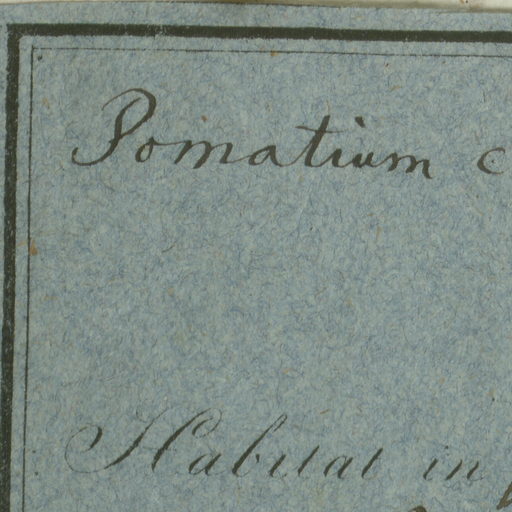 Pomatium c
Habitat in